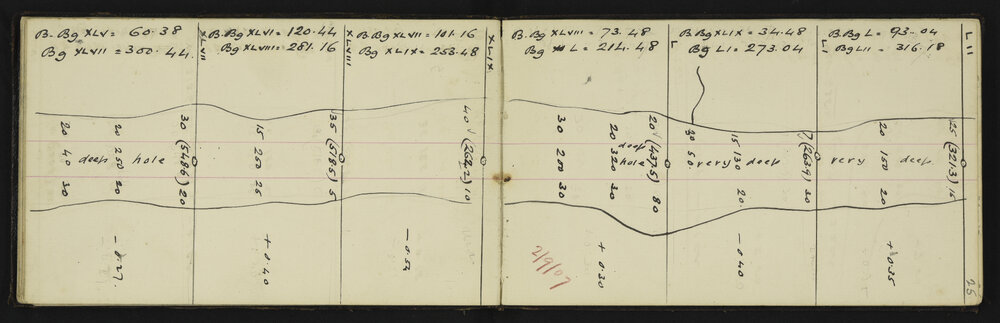 B. Bg XLV = 60.38
Bg XLVII = 300.44
XLVII
B. Bg XLVI = 120.44
Bg XLVIII = 281.16
XLVIII
B. Bg XLVII = 101.16
Bg XLIX = 253.48
XLIX
20 20 30
40 deep 250 hole (5486)
30 20 20
- 0.27.
15 35
250 (585)
25 5
+ 0.40
40
(2622)
10
- 0.54
B. Bg XLVIII = 73.48
Bg L = 214.48
L
B. Bg XLIX = 34.48
Bg LI = 273.04
LI
B. Bg L = 93.04
Bg LII = 316.18
LII
30 20 20
200 deep 320 hole (4375)
30 30 80
+ 0.30
2/9/07
30 15 7
50. very 130 deep (2634)
20. 30
- 0.40
20 25
very 150 deep (3213)
20 15
+ 0.35
25